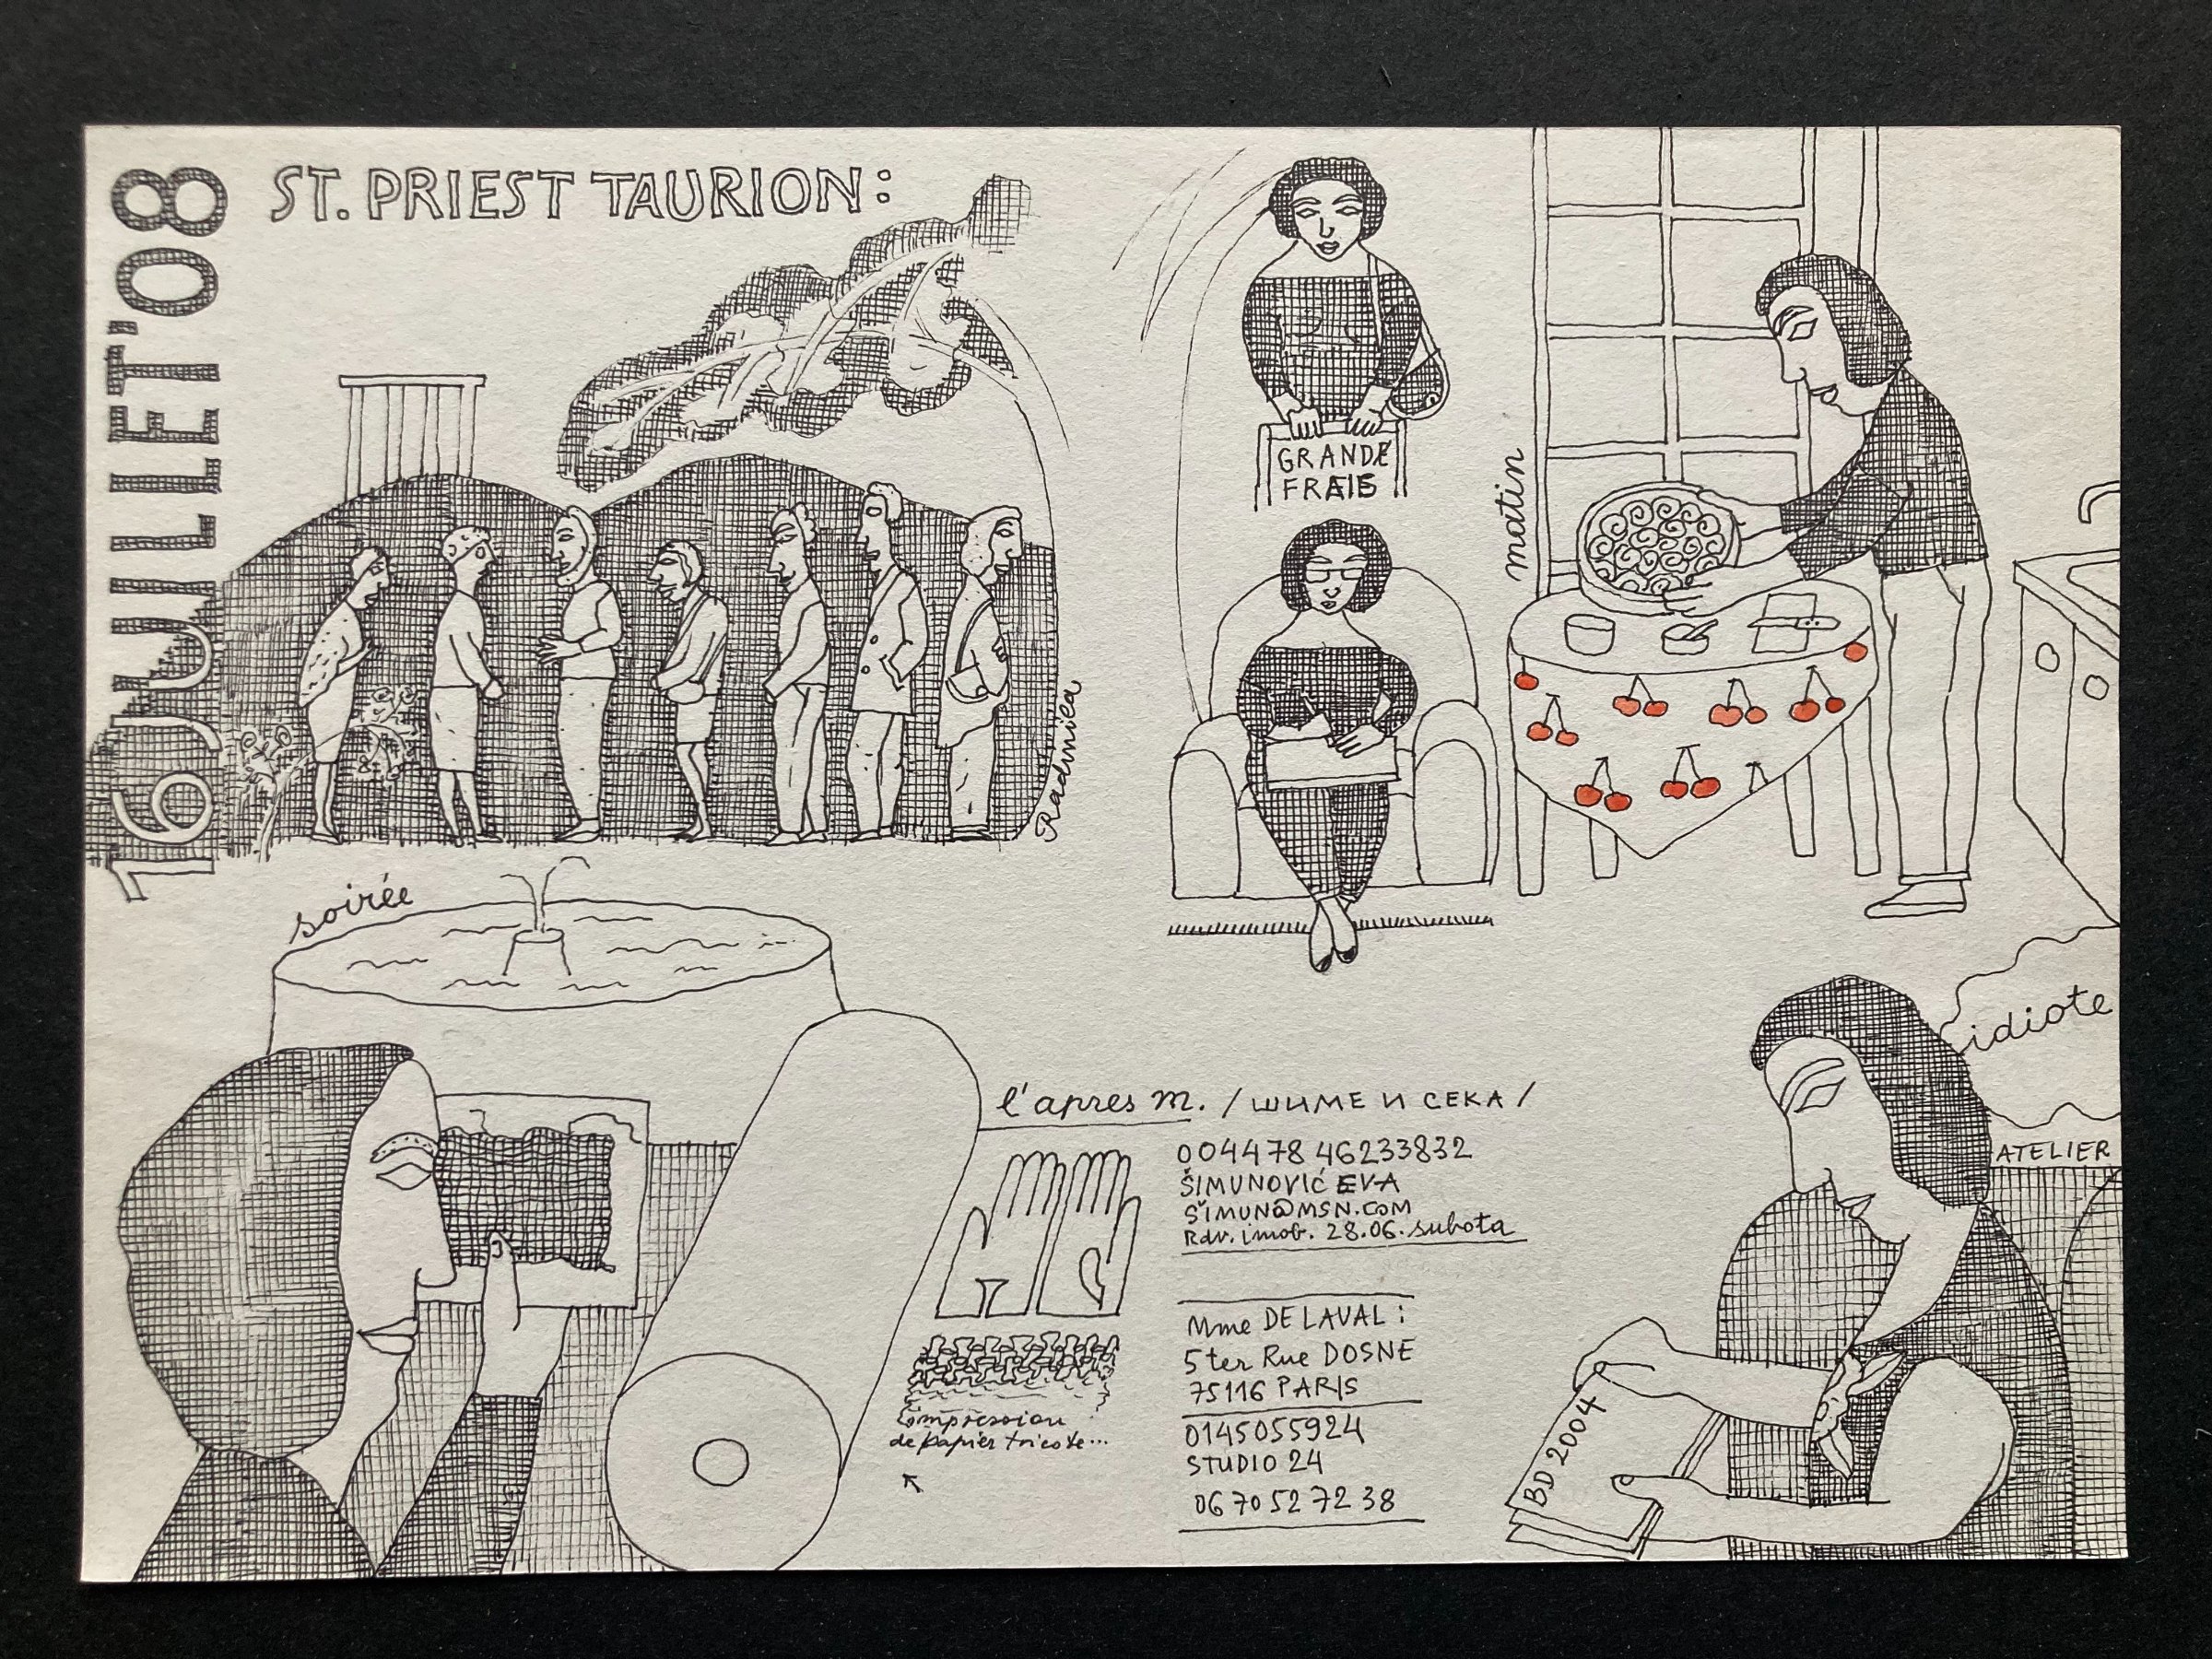 16 JUILLET'08
ST. PRIEST TAURION:
Radmila
GRANDE
FRAIS
matin
soirée
idiote
ATELIER
l'apres m. /ШИМЕ И СЕКА/
004478 46233832
ŠIMUNOVIĆ EVA
ŠIMUN@MSN.COM
Rdv. imob. 28.06. subota
Mme DE LAVAL:
5 ter Rue DOSNE
75116 PARIS
0145055924
STUDIO 24
06 70 52 72 38
compression
de papier tricote...
BD 2004